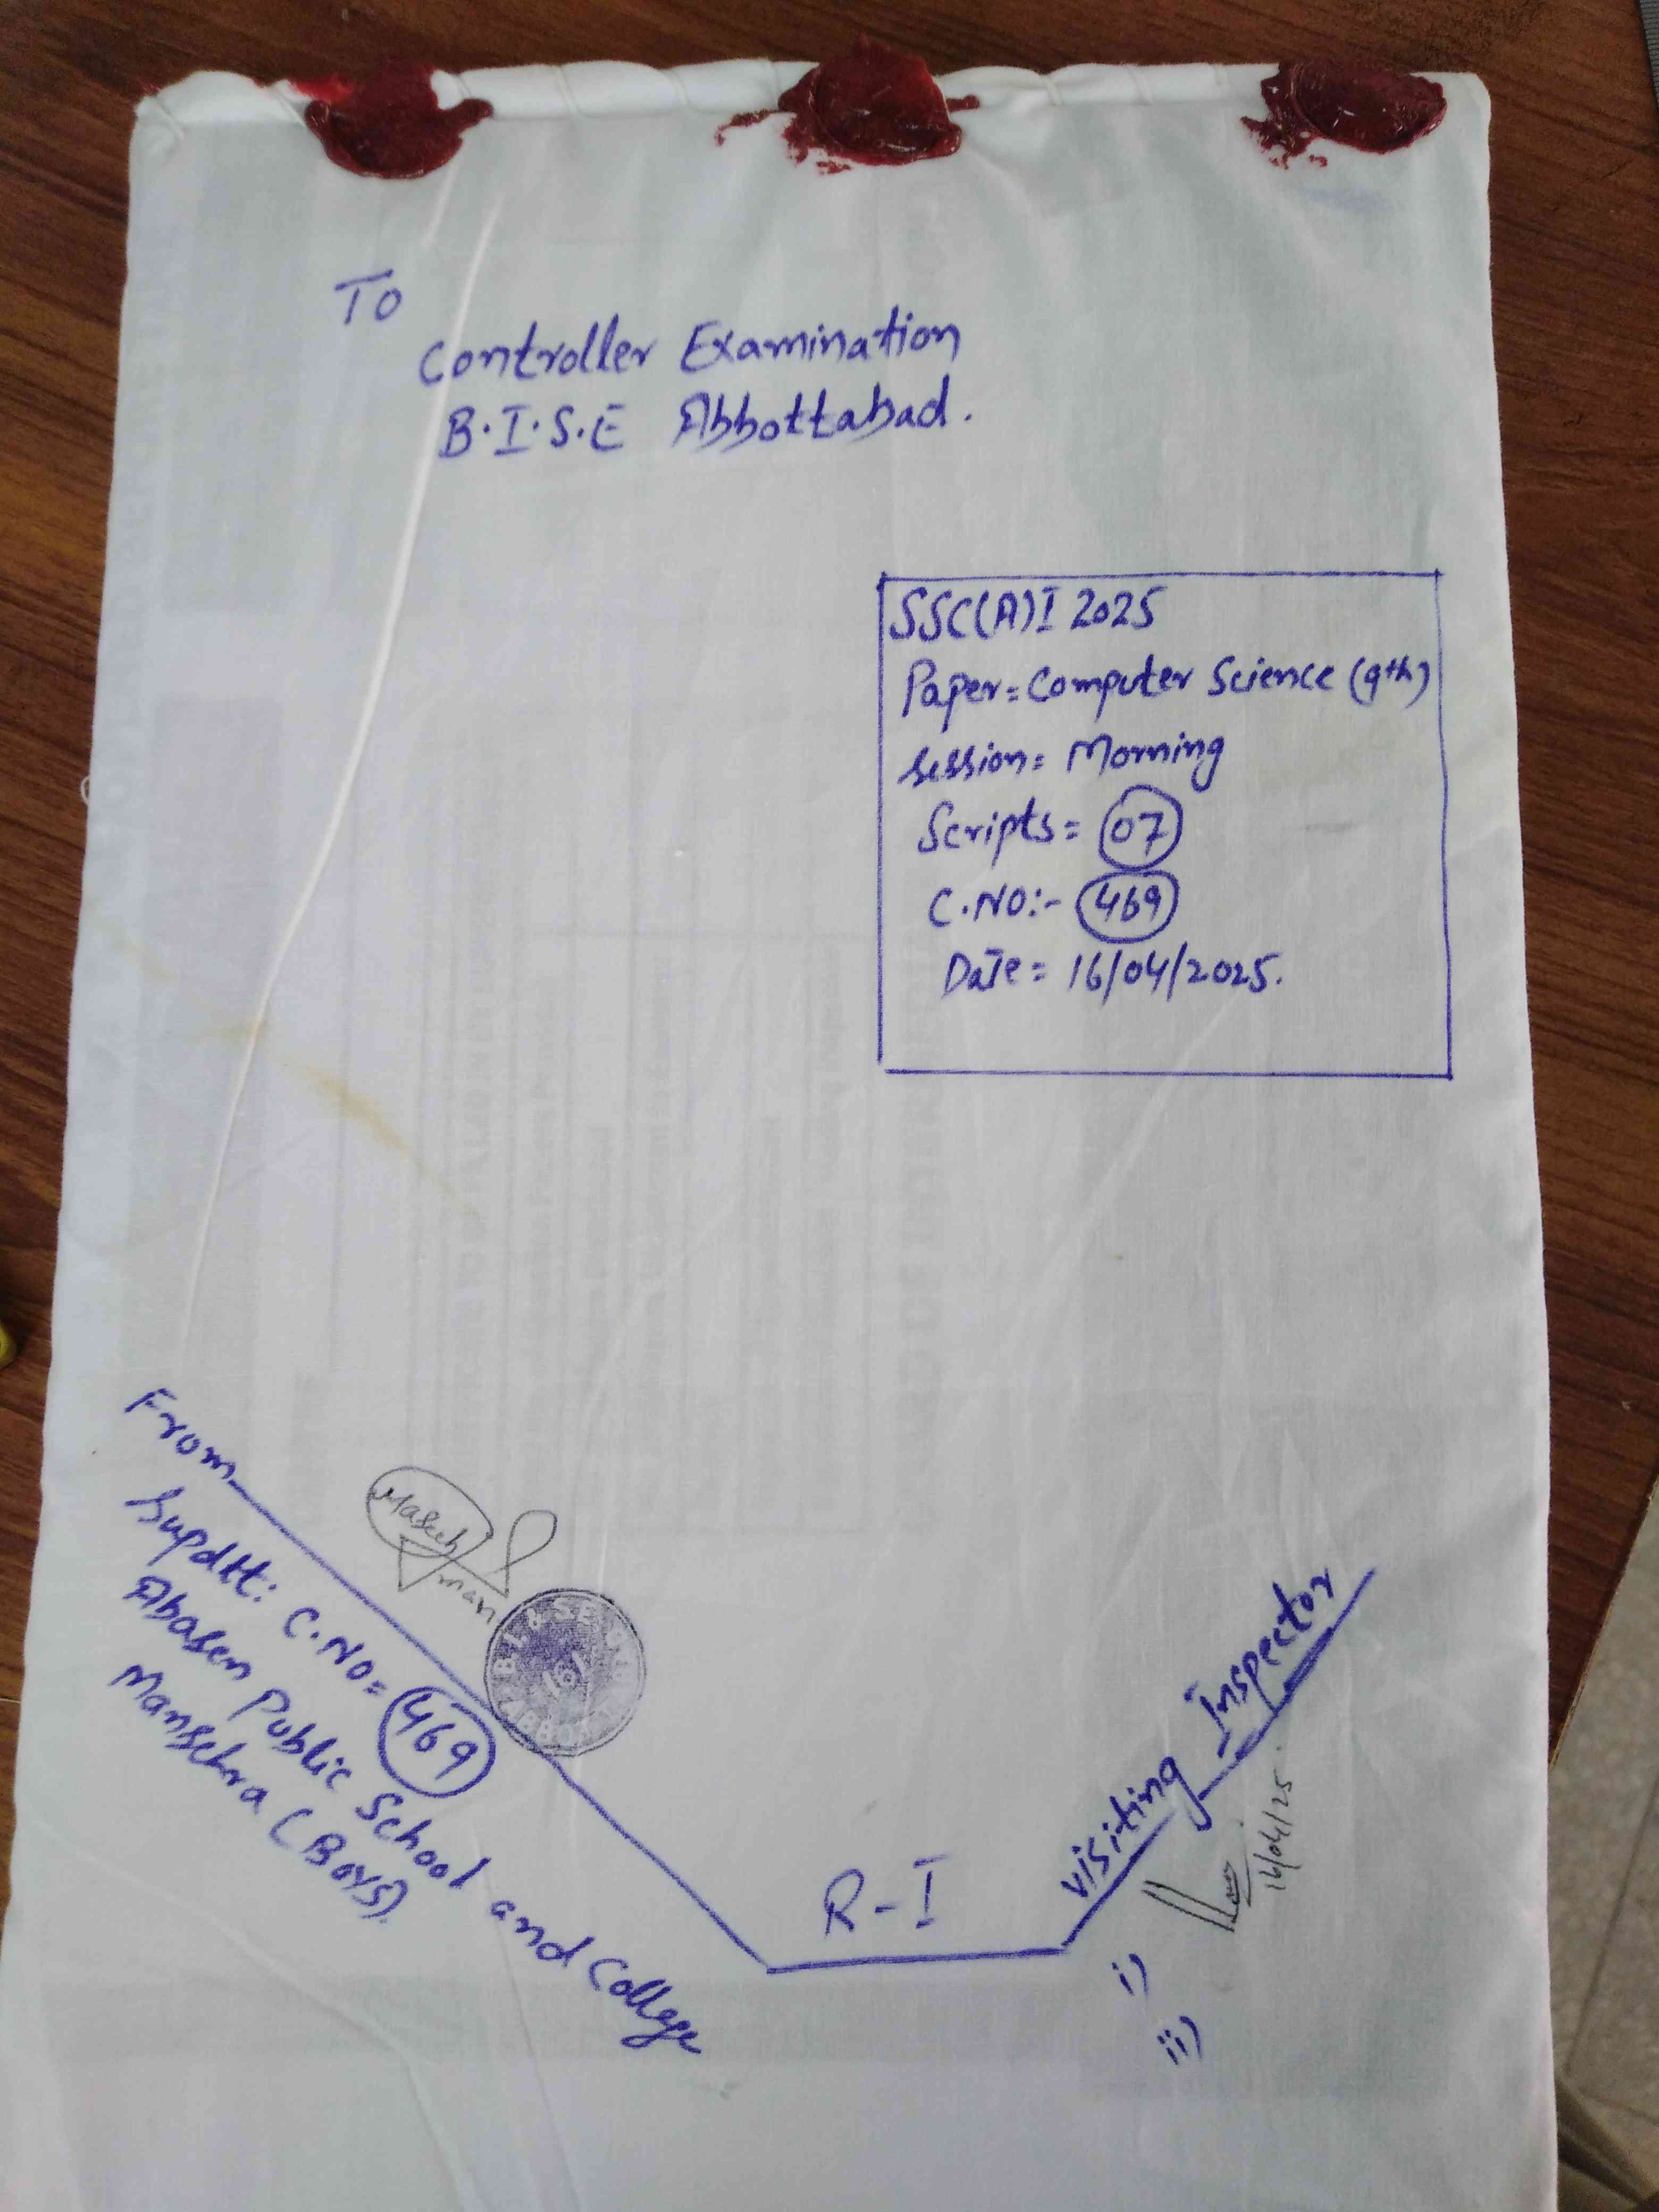 To
Controller Examination
B.I.S.E Abbottabad.
SSC(A)I 2025
Paper= Computer Science (9th)
Session= Morning
Scripts= 07
C.NO:- 469
Date= 16/04/2025.
From
Supdtt: C.NO= 469
Abasen Public School and College
Mansehra (Boys).
R-I
Visiting Inspector
16/04/25.
i)
ii)